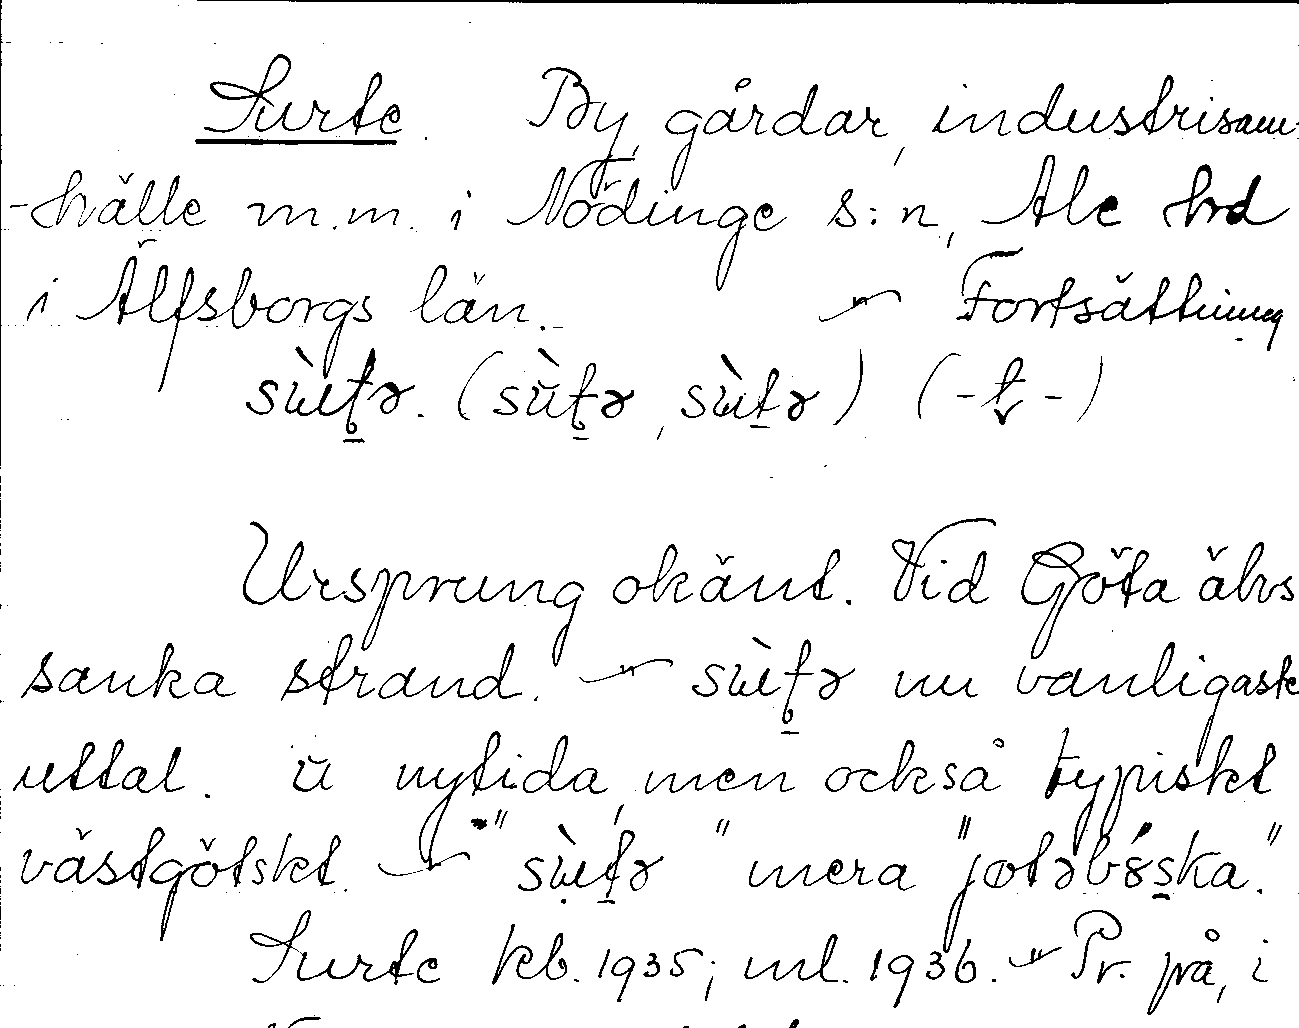 Surte. By, gårdar, industrisam-
-hälle m.m. i Nödinge s:n, Ale hrd
i Älfsborgs län. – Fortsättning
Ursprung okänt. Vid Göta älvs
sanka strand. – nu vanligaste
uttal. ü nytida, men också typiskt
västgötskt. – mera
Surte kb. 1935; ml. 1936. – Pr. på, i